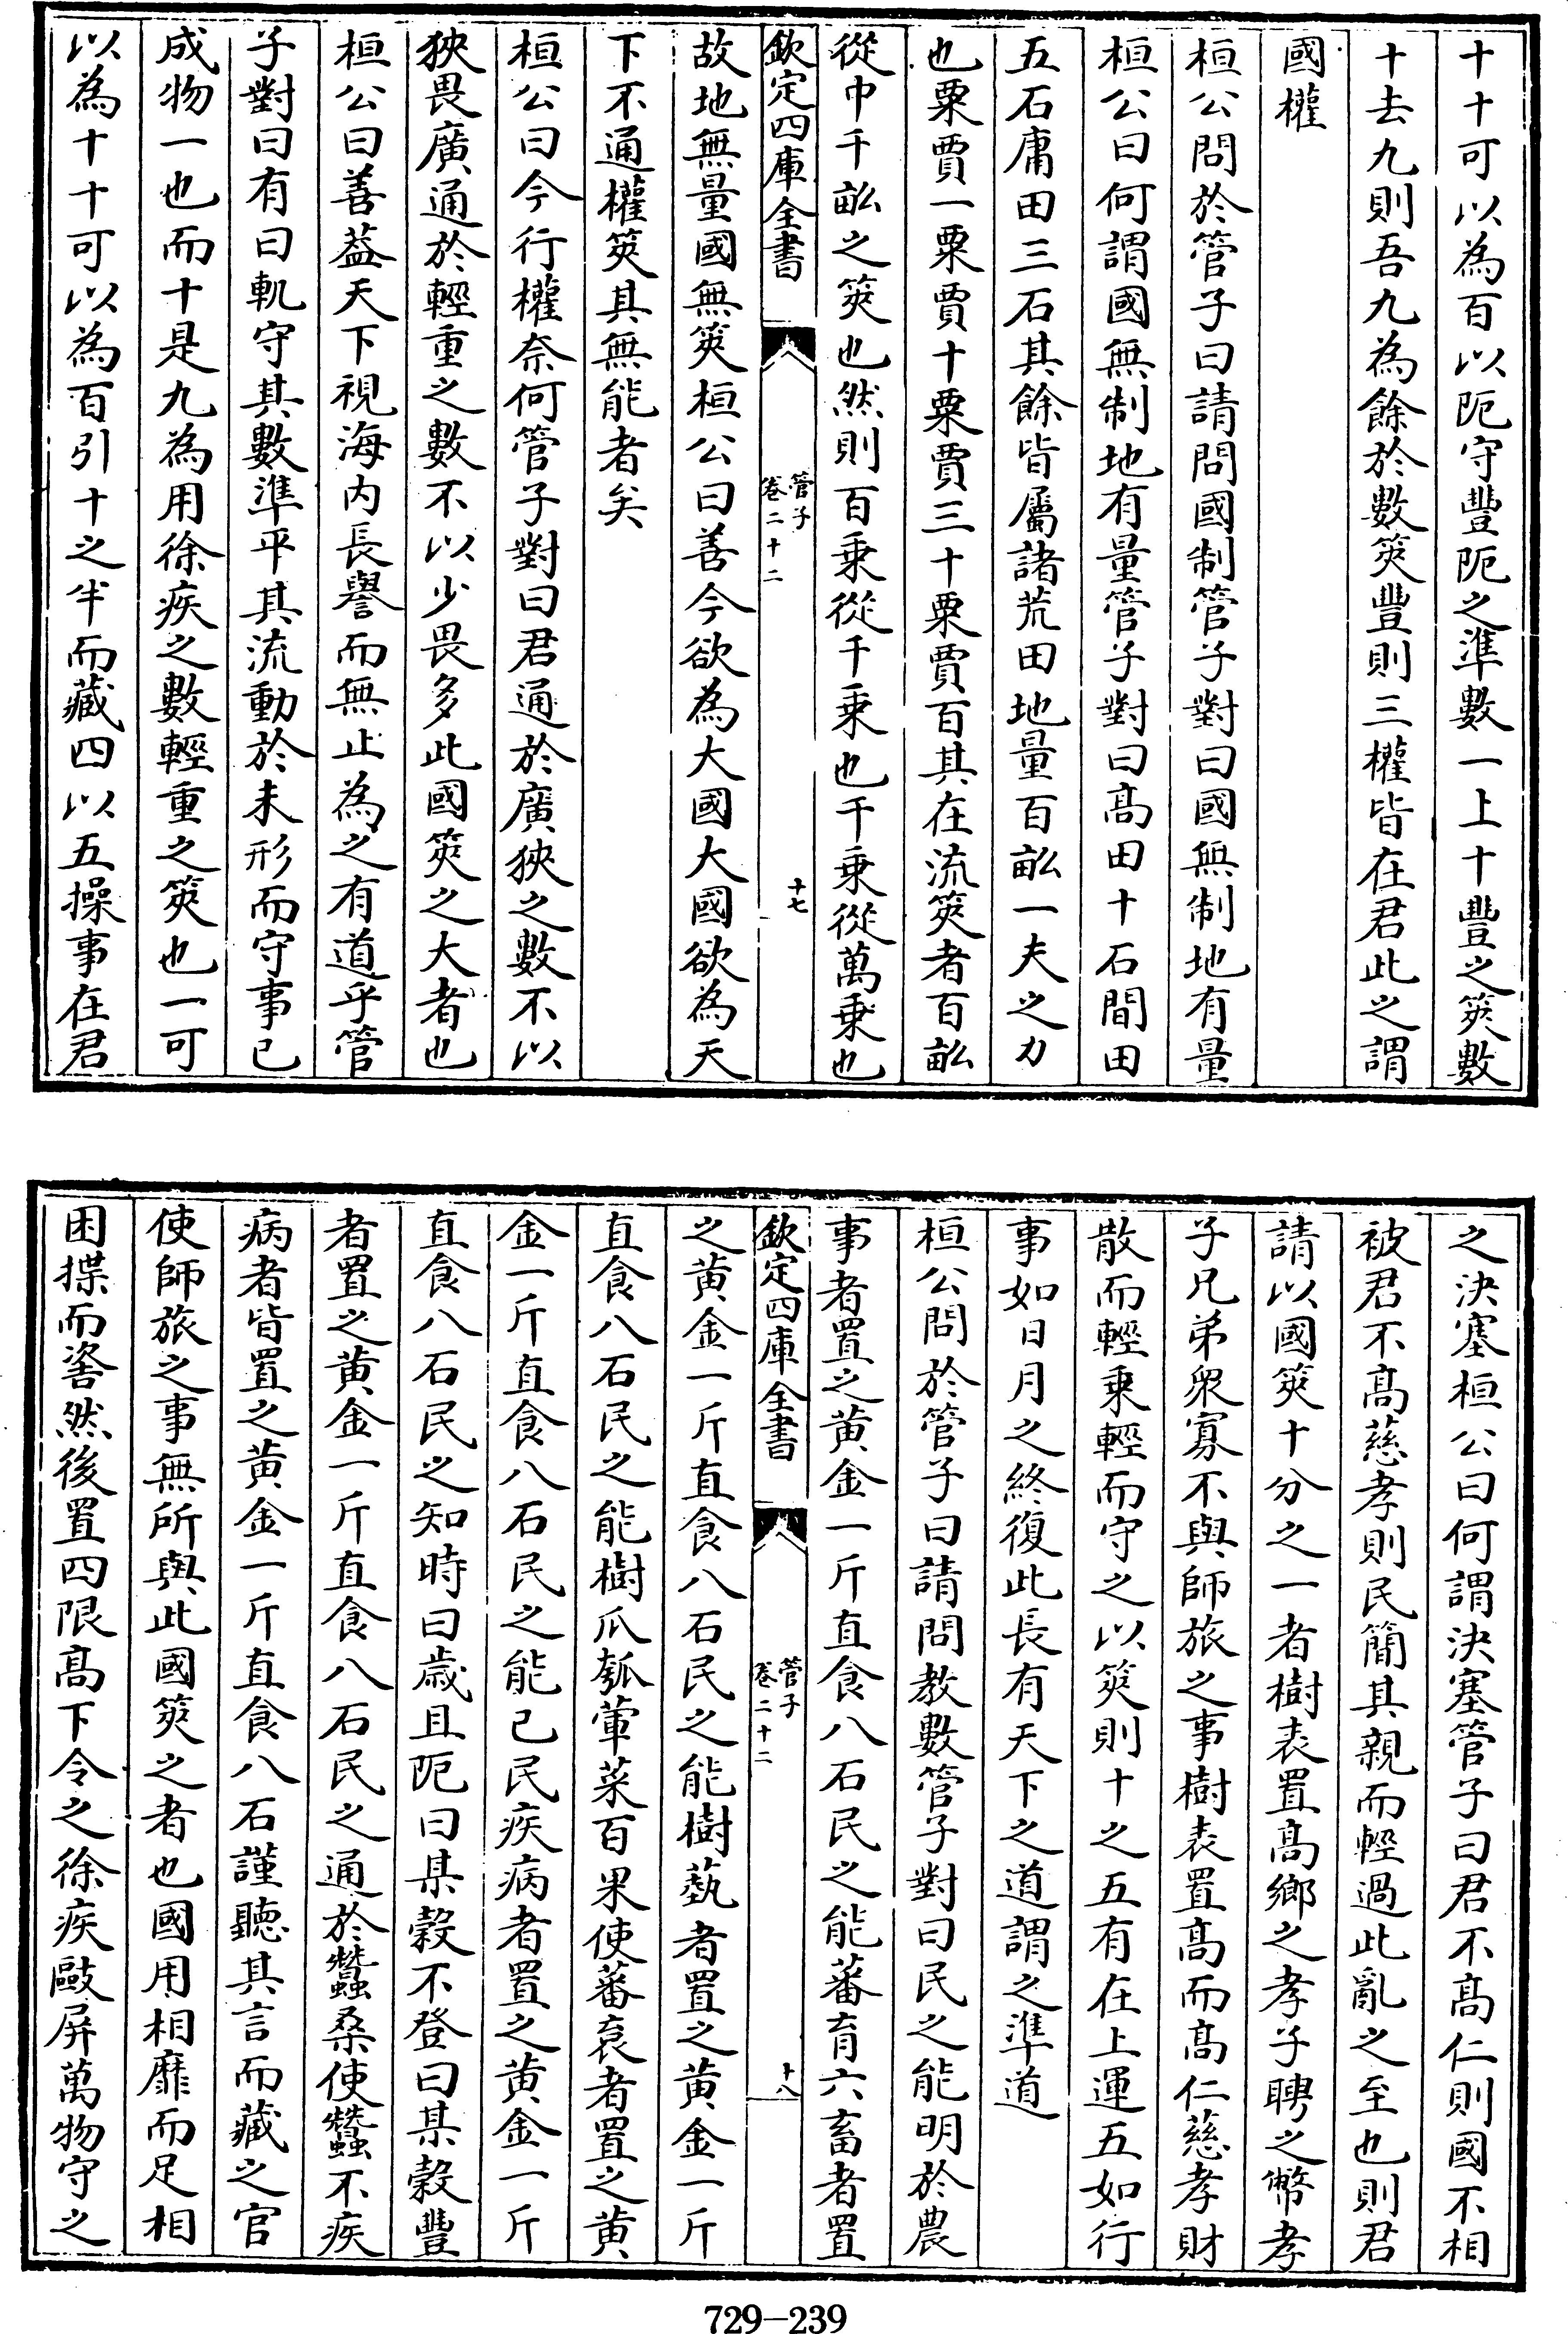 十十可以為百以阨守豐阨之準數一上十豐之筴數
十去九則吾九為餘於數筴豐則三權皆在君此之謂
國權
桓公問於管子曰請問國制管子對曰國無制地有量
桓公曰何謂國無制地有量管子對曰髙田十石間田
五石庸田三石其餘皆屬諸荒田地量百畝一夫之力
也粟賈一粟賈十粟賈三十粟賈百其在流筴者百畝
從中千畝之筴也然則百乗從千乗也千乗從萬乗也
欽定四庫全書
管子
卷二十二
十七
故地無量國無筴桓公曰善今欲為大國大國欲為天
下不通權筴其無能者矣
桓公曰今行權奈何管子對曰君通於廣狹之數不以
狹畏廣通於輕重之數不以少畏多此國筴之大者也
桓公曰善葢天下視海内長譽而無止為之有道乎管
子對曰有曰軌守其數準平其流動於未形而守事已
成物一也而十是九為用徐疾之數輕重之筴也一可
以為十十可以為百引十之半而藏四以五操事在君
之決塞桓公曰何謂決塞管子曰君不髙仁則國不相
被君不髙慈孝則民簡其親而輕過此亂之至也則君
請以國筴十分之一者樹表置髙鄉之孝子聘之幣孝
子兄弟衆寡不與師旅之事樹表置髙而髙仁慈孝財
散而輕乗輕而守之以筴則十之五有在上運五如行
事如日月之終復此長有天下之道謂之準道
桓公問於管子曰請問教數管子對曰民之能明於農
事者置之黄金一斤直食八石民之能蕃育六畜者置
欽定四庫全書
管子
卷二十二
十八
之黄金一斤直食八石民之能樹蓺者置之黄金一斤
直食八石民之能樹瓜瓠葷菜百果使蕃袬者置之黄
金一斤直食八石民之能已民疾病者置之黄金一斤
直食八石民之知時曰歲且阨曰某榖不登曰某榖豐
者置之黄金一斤直食八石民之通於蠶桑使蠶不疾
病者皆置之黄金一斤直食八石謹聽其言而藏之官
使師旅之事無所與此國筴之者也國用相靡而足相
困揲而㿱然後置四限髙下令之徐疾敺屏萬物守之
729-239